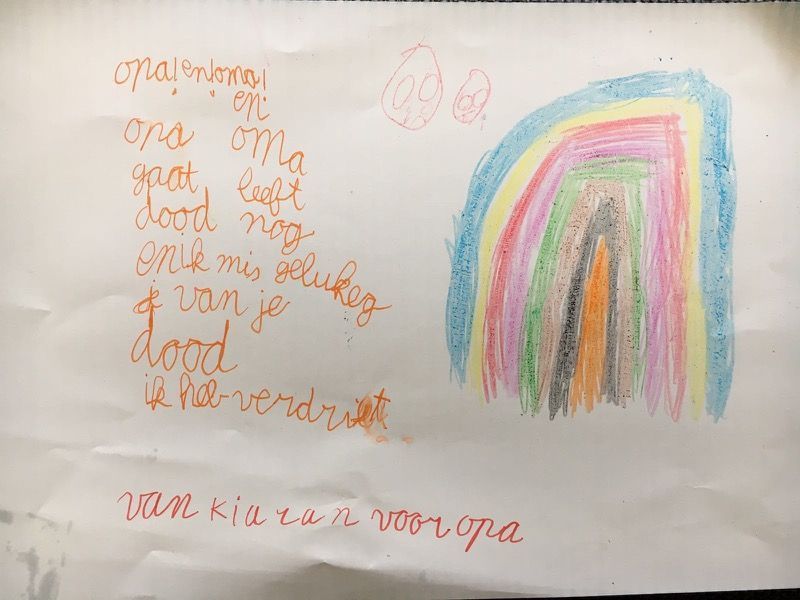 opa! en! oma!
en
opa oma
gaat leeft
dood nog
en ik mis gelukkeg
je van je
dood
ik heb verdriet
van kiaran voor opa